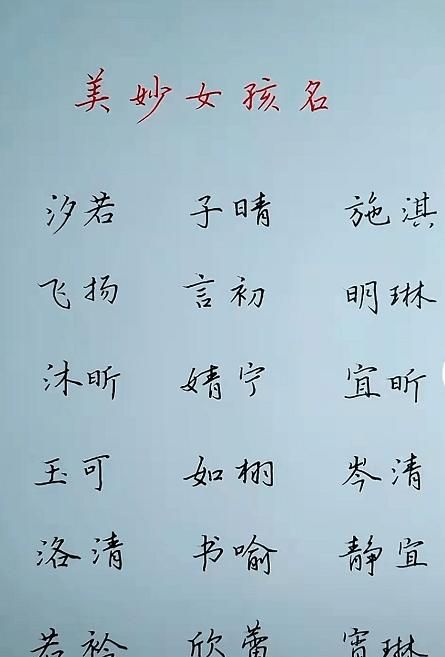 美妙女孩名
汐若 子晴 施淇
飞扬 言初 明琳
沐昕 婧宁 宜昕
玉可 如栩 岑清
洛清 书喻 静宜
若衿 欣蕾 宵琳